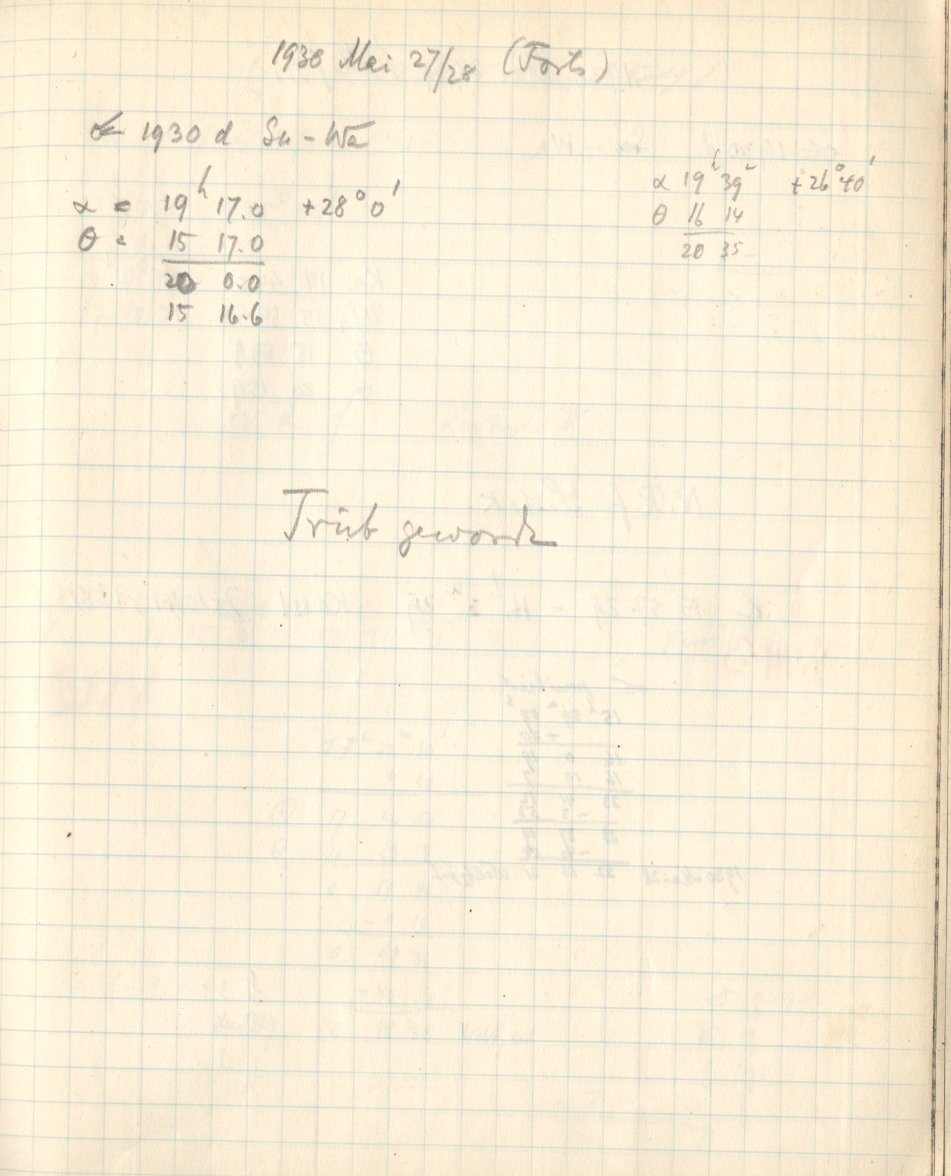 1930 Mai 27/28 (Forts)
1930 d Su-Wa
α = 19h 17.0 +28° 0'
θ = 15 17.0
20 0.0
15 16.6
α 19h 39m +26° 40'
θ 16 14
20 35
Trüb geworden